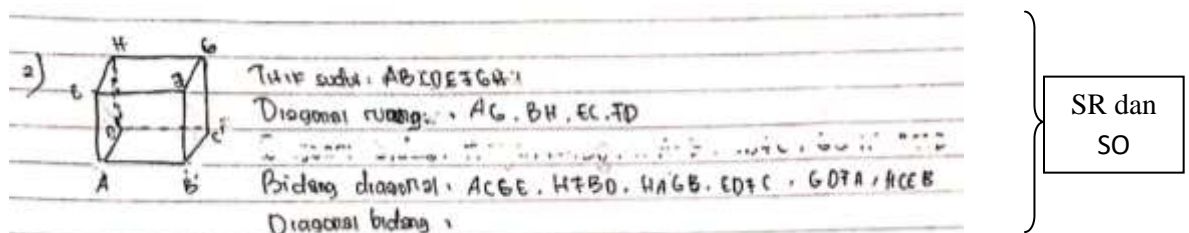 2)
H G
E F
D C
A B
Titik sudut : ABCDEFGH
Diagonal ruang : AG, BH, EC, FD
Bidang diagonal : ACGE, HFBD, HAGB, EDFC, GDFA, HCEB
Diagonal bidang :
SR dan
SO